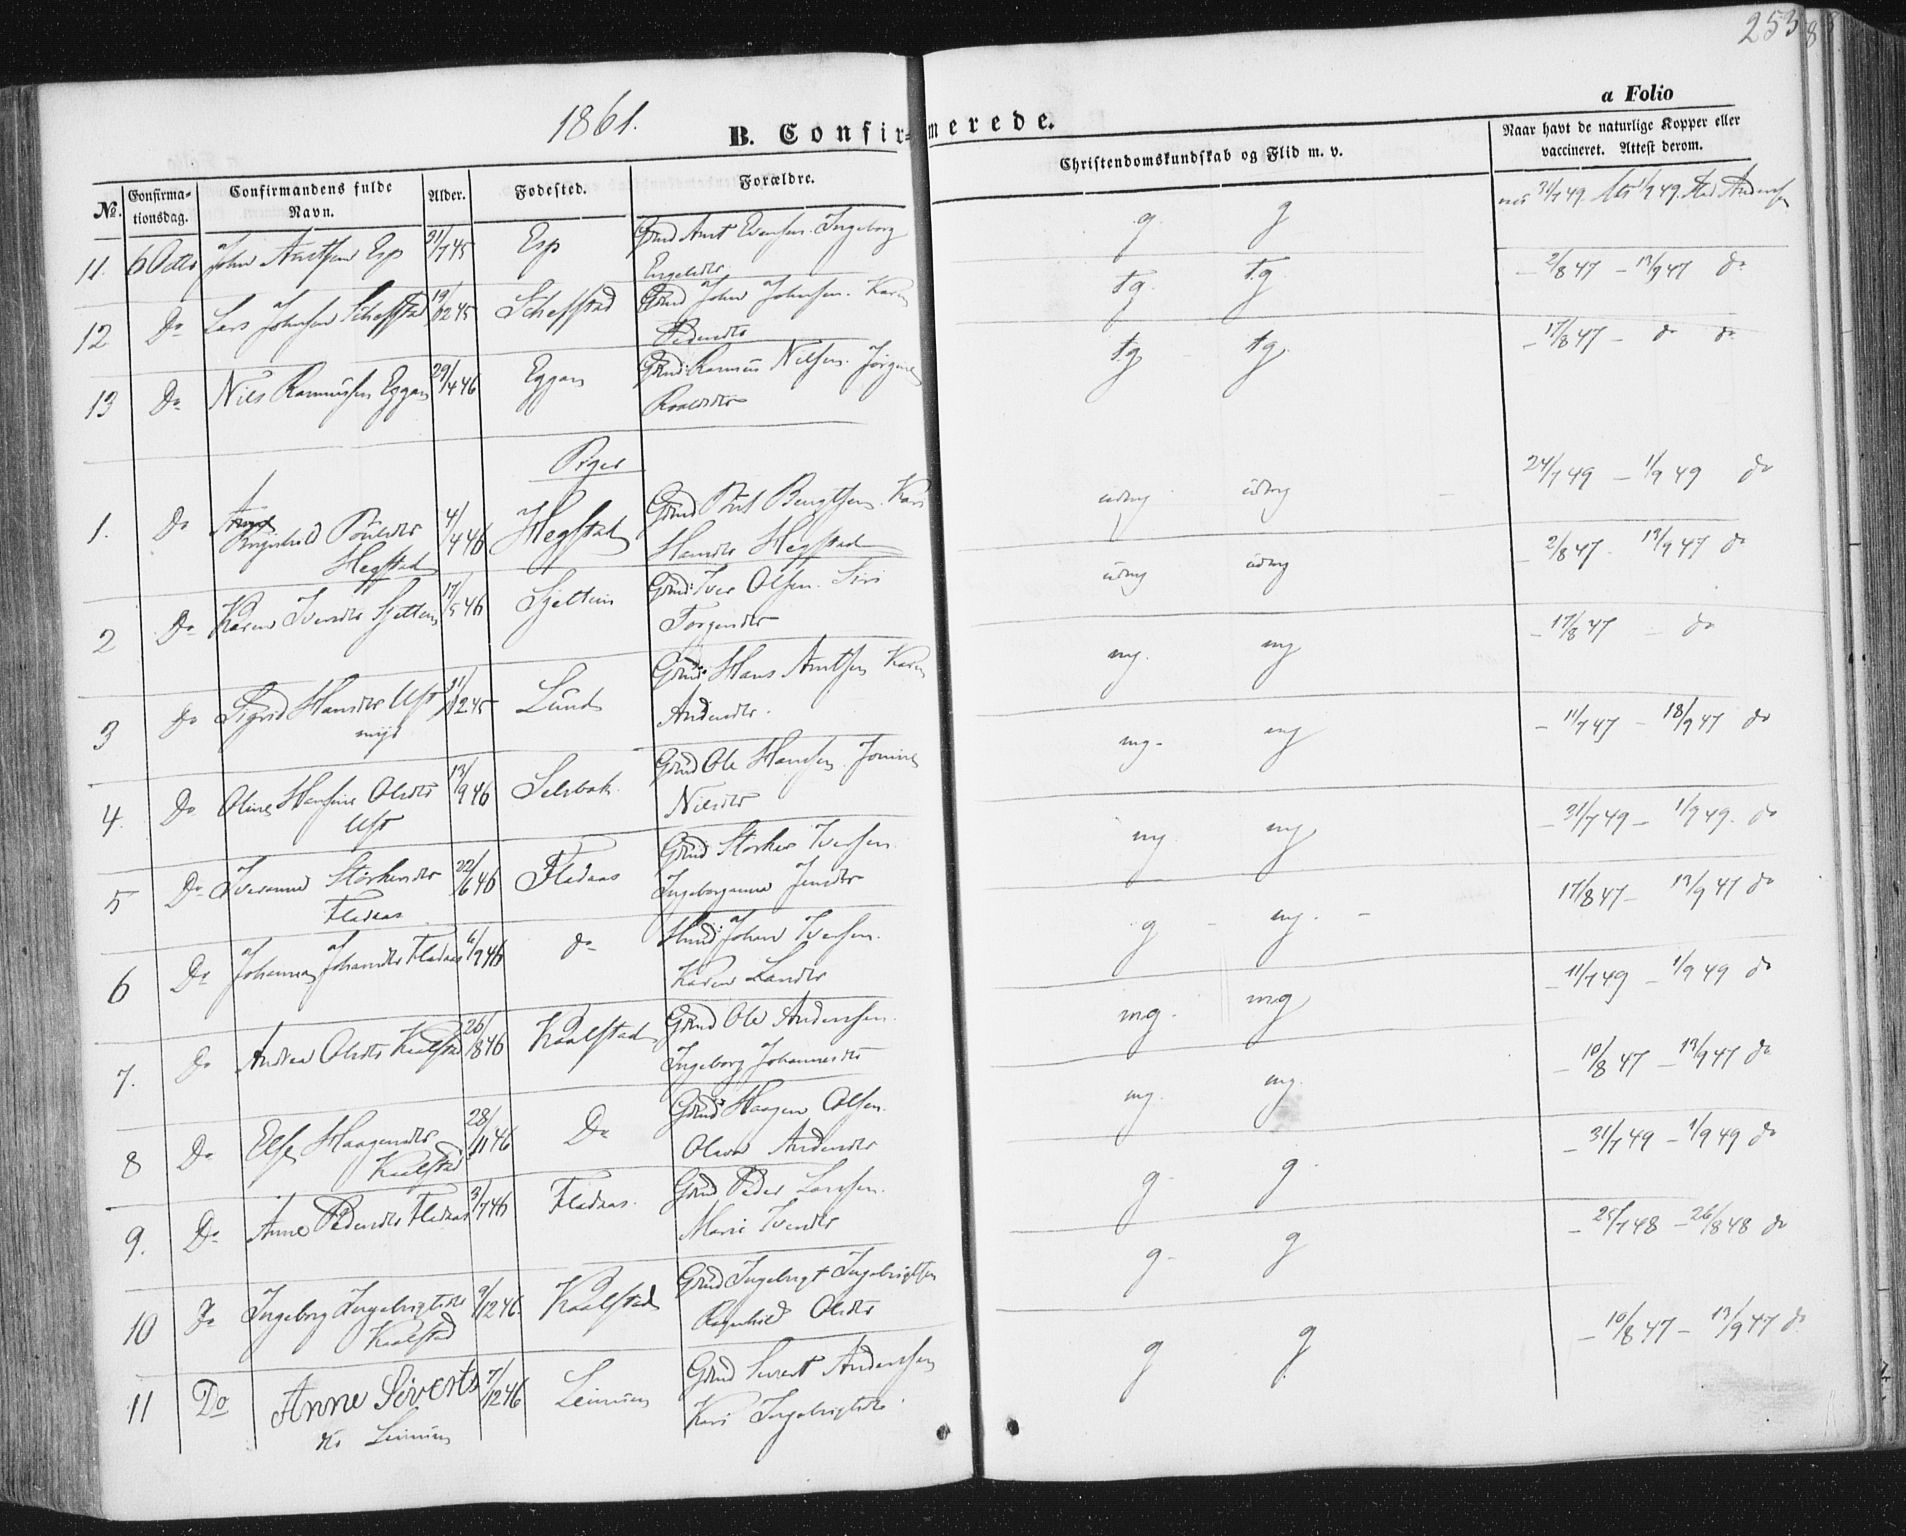 253
8
1861.
B. Confirmerede.
a Folio
No.
Confirmationsdag.
Confirmandens fulde Navn.
Alder.
Fødested.
Forældre.
Christendomskundskab og Flid m. v.
Naar havt de naturlige Kopper eller vaccineret. Attest derom.
11. 6 Octbr John Arntsen Esp 21/7 45 Esp Grmd Arnt Evensen. Ingeborg g. g 31/7 49. Att 1/9 49.
12 Do Lars Johnsen Schefstad 19/12 45 Schefstad Grmd John Johnsen. Karen Pedersdtr tg. tg. – 2/8 47 – 13/9 47 do
13 Do Nils Rasmussen Eggan 29/4 46 Eggan Grmd: Rasmus Nilsen. Jørgine Roaldsdtr tg tg. – 17/8 47 – do do
Piger
1. Do Ragnhild Poulsdtr Hegstad 4/4 46 Hegstad Grmd Poul Bengtsen. Kari Hansdtr Hegstad udmg udmg 24/7 49 – 1/9 49 do
2 Do Karen Iversdtr Sjettem 17/5 46 Sjettem Grmd: Iver Olsen. Siri Torgersdtr udmg udmg – 2/8 47. 13/9 47 do
3 Do Sigrid Hansdtr Ust 11/12 45 Lund Grmd: Hans Arntsen Karen Andersdtr. mg. mg – 17/8 47 – do
4. Do Oline Hansine Olsdtr Ust 13/9 46 Selsbak. Grmd Ole Hansen. Jonine Nilsdtr mg. mg – 11/7 47 – 18/9 47 do
5 Do Iveranna Størkersdtr Fladaas 22/6 46 Fladaas Grmd Størker Iversen. Ingeborganna Jensdtr mg. mg – 31/7 49 – 1/9 49. do
6 Do Johanna Johansdtr Fladaas 6/9 46 do Huusmd: Johan Iversen. Karen Larsdtr g – mg. – 17/8 47 – 13/9 47 do
7. Do Andrea Olsdtr Kaalstad 26/8 46 Kaalstad Grmd Ole Andersen. Ingeborg Johannesdtr mg. mg – 11/7 49 – 1/9 49 do
8 Do Else Haagensdtr Kaalstad 28/11 46 Do Grmd Haagen Olsen. Olava Andersdtr mg. mg. – 10/8 47 – 13/9 47 do
9. Do Anne Pedersdtr Fladaas 3/7 46 Fladaas. Grmd Peder Larsen. Marie Iversdtr g. g. – 31/7 49 – 1/9 49 do
10 Do Ingeborg Ingebrigtsdtr Kaalstad 9/12 46. Kaalstad Grmd Ingebrigt Ingebrigtsen Ragnhild Olsdtr g. g – 25/7 48 – 26/8 48 do
11 Do Anne Siverts Leinum 7/12 46 Leinum Grmd Sivert Andersen Kari Ingebrigtsdtr g g – 10/8 47 – 13/9 47 do